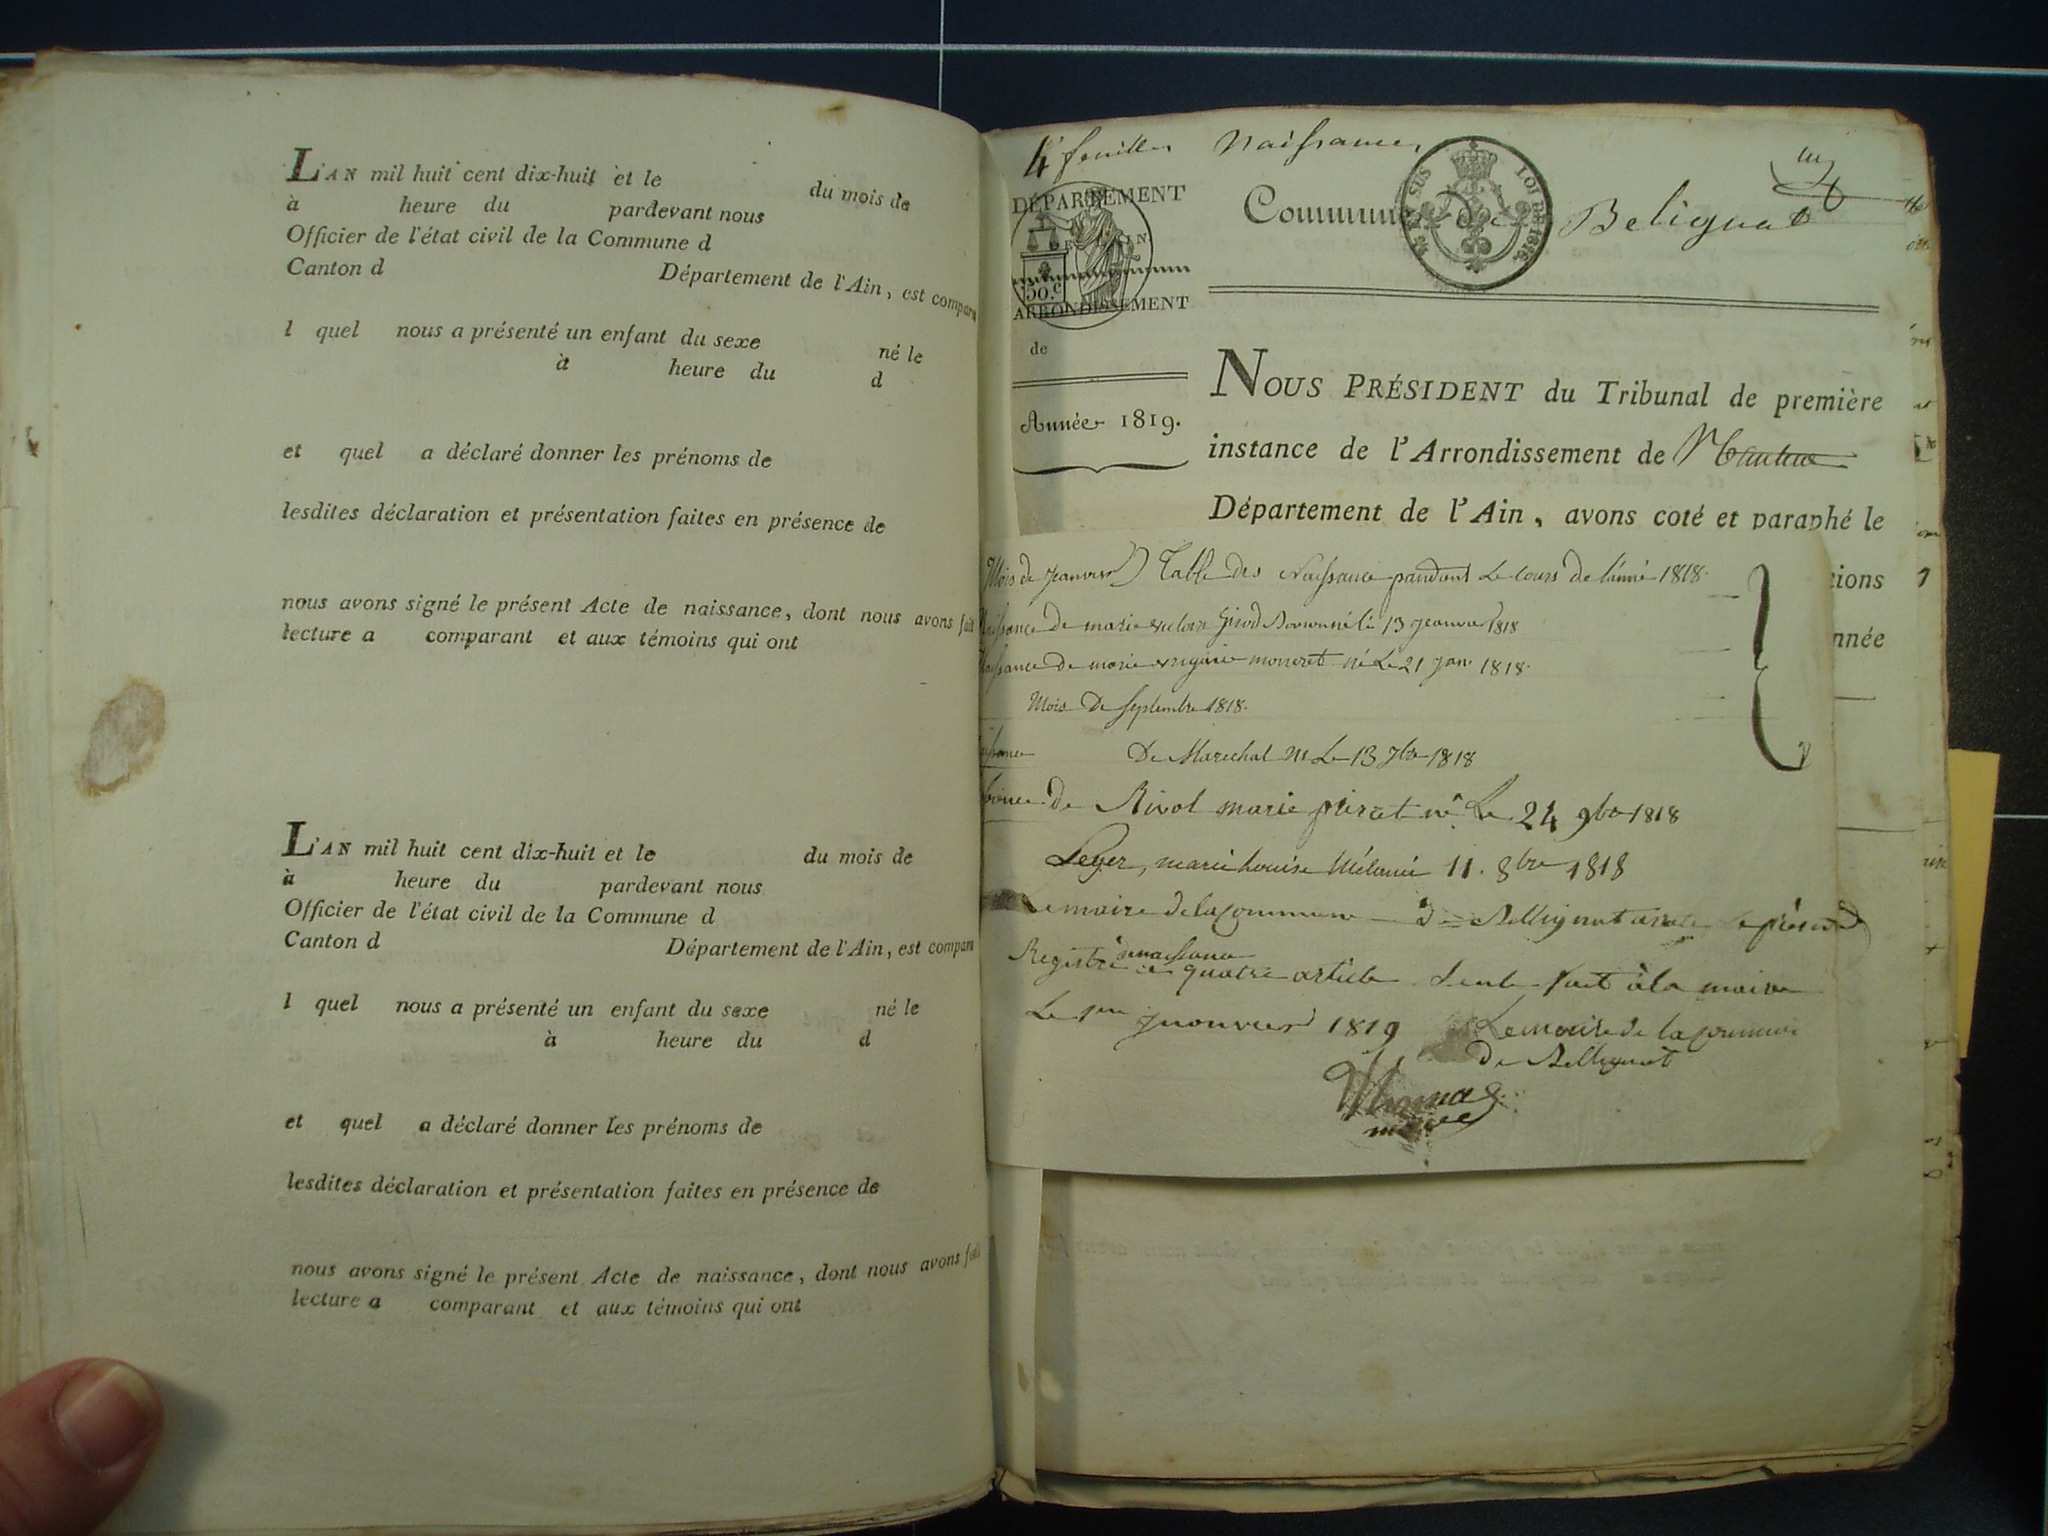 L'AN mil huit cent dix-huit et le du mois de
à heure du pardevant nous
Officier de l'état civil de la Commune d
Canton d Département de l'Ain, est compara
l quel nous a présenté un enfant du sexe né le
à heure du d
et quel a déclaré donner les prénoms de
lesdites déclaration et présentation faites en présence de
nous avons signé le présent Acte de naissance, dont nous avons fait
lecture a comparant et aux témoins qui ont
L'AN mil huit cent dix-huit et le du mois de
à heure du pardevant nous
Officier de l'état civil de la Commune d
Canton d Département de l'Ain, est compara
l quel nous a présenté un enfant du sexe né le
à heure du d
et quel a déclaré donner les prénoms de
lesdites déclaration et présentation faites en présence de
nous avons signé le présent Acte de naissance, dont nous avons fait
lecture a comparant et aux témoins qui ont
4 feuilles Naissance
DÉPARTEMENT
DE L'AIN.
50.c
ARRONDISSEMENT
de
Année 1819.
Commune de Belignat
EN SUS LOI DE 1816
NOUS PRÉSIDENT du Tribunal de première
instance de l'Arrondissement de Nantua
Département de l'Ain, avons coté et paraphé le
tions
nnée
Mois de Jeanvier Table des Naissance pandant le cours de l'anné 1818.
Naissance de marie Girod né le 13 Jeanvier 1818
Naissance de marie moneret né Le 21 Jan 1818.
Mois De Septembre 1818.
De Marechal né Le 13 7bre 1818
de Rivol marie né Le 24 9bre 1818
Leger, marie Louise Mélanie 11. 8bre 1818
Le maire de la commune de Bellignat le présend
Registre de naissance a quatre article Seule fait à la mairie
Le 1er Jeanvier 1819 Le maire de la commune
de Bellignat
Thomas
maire